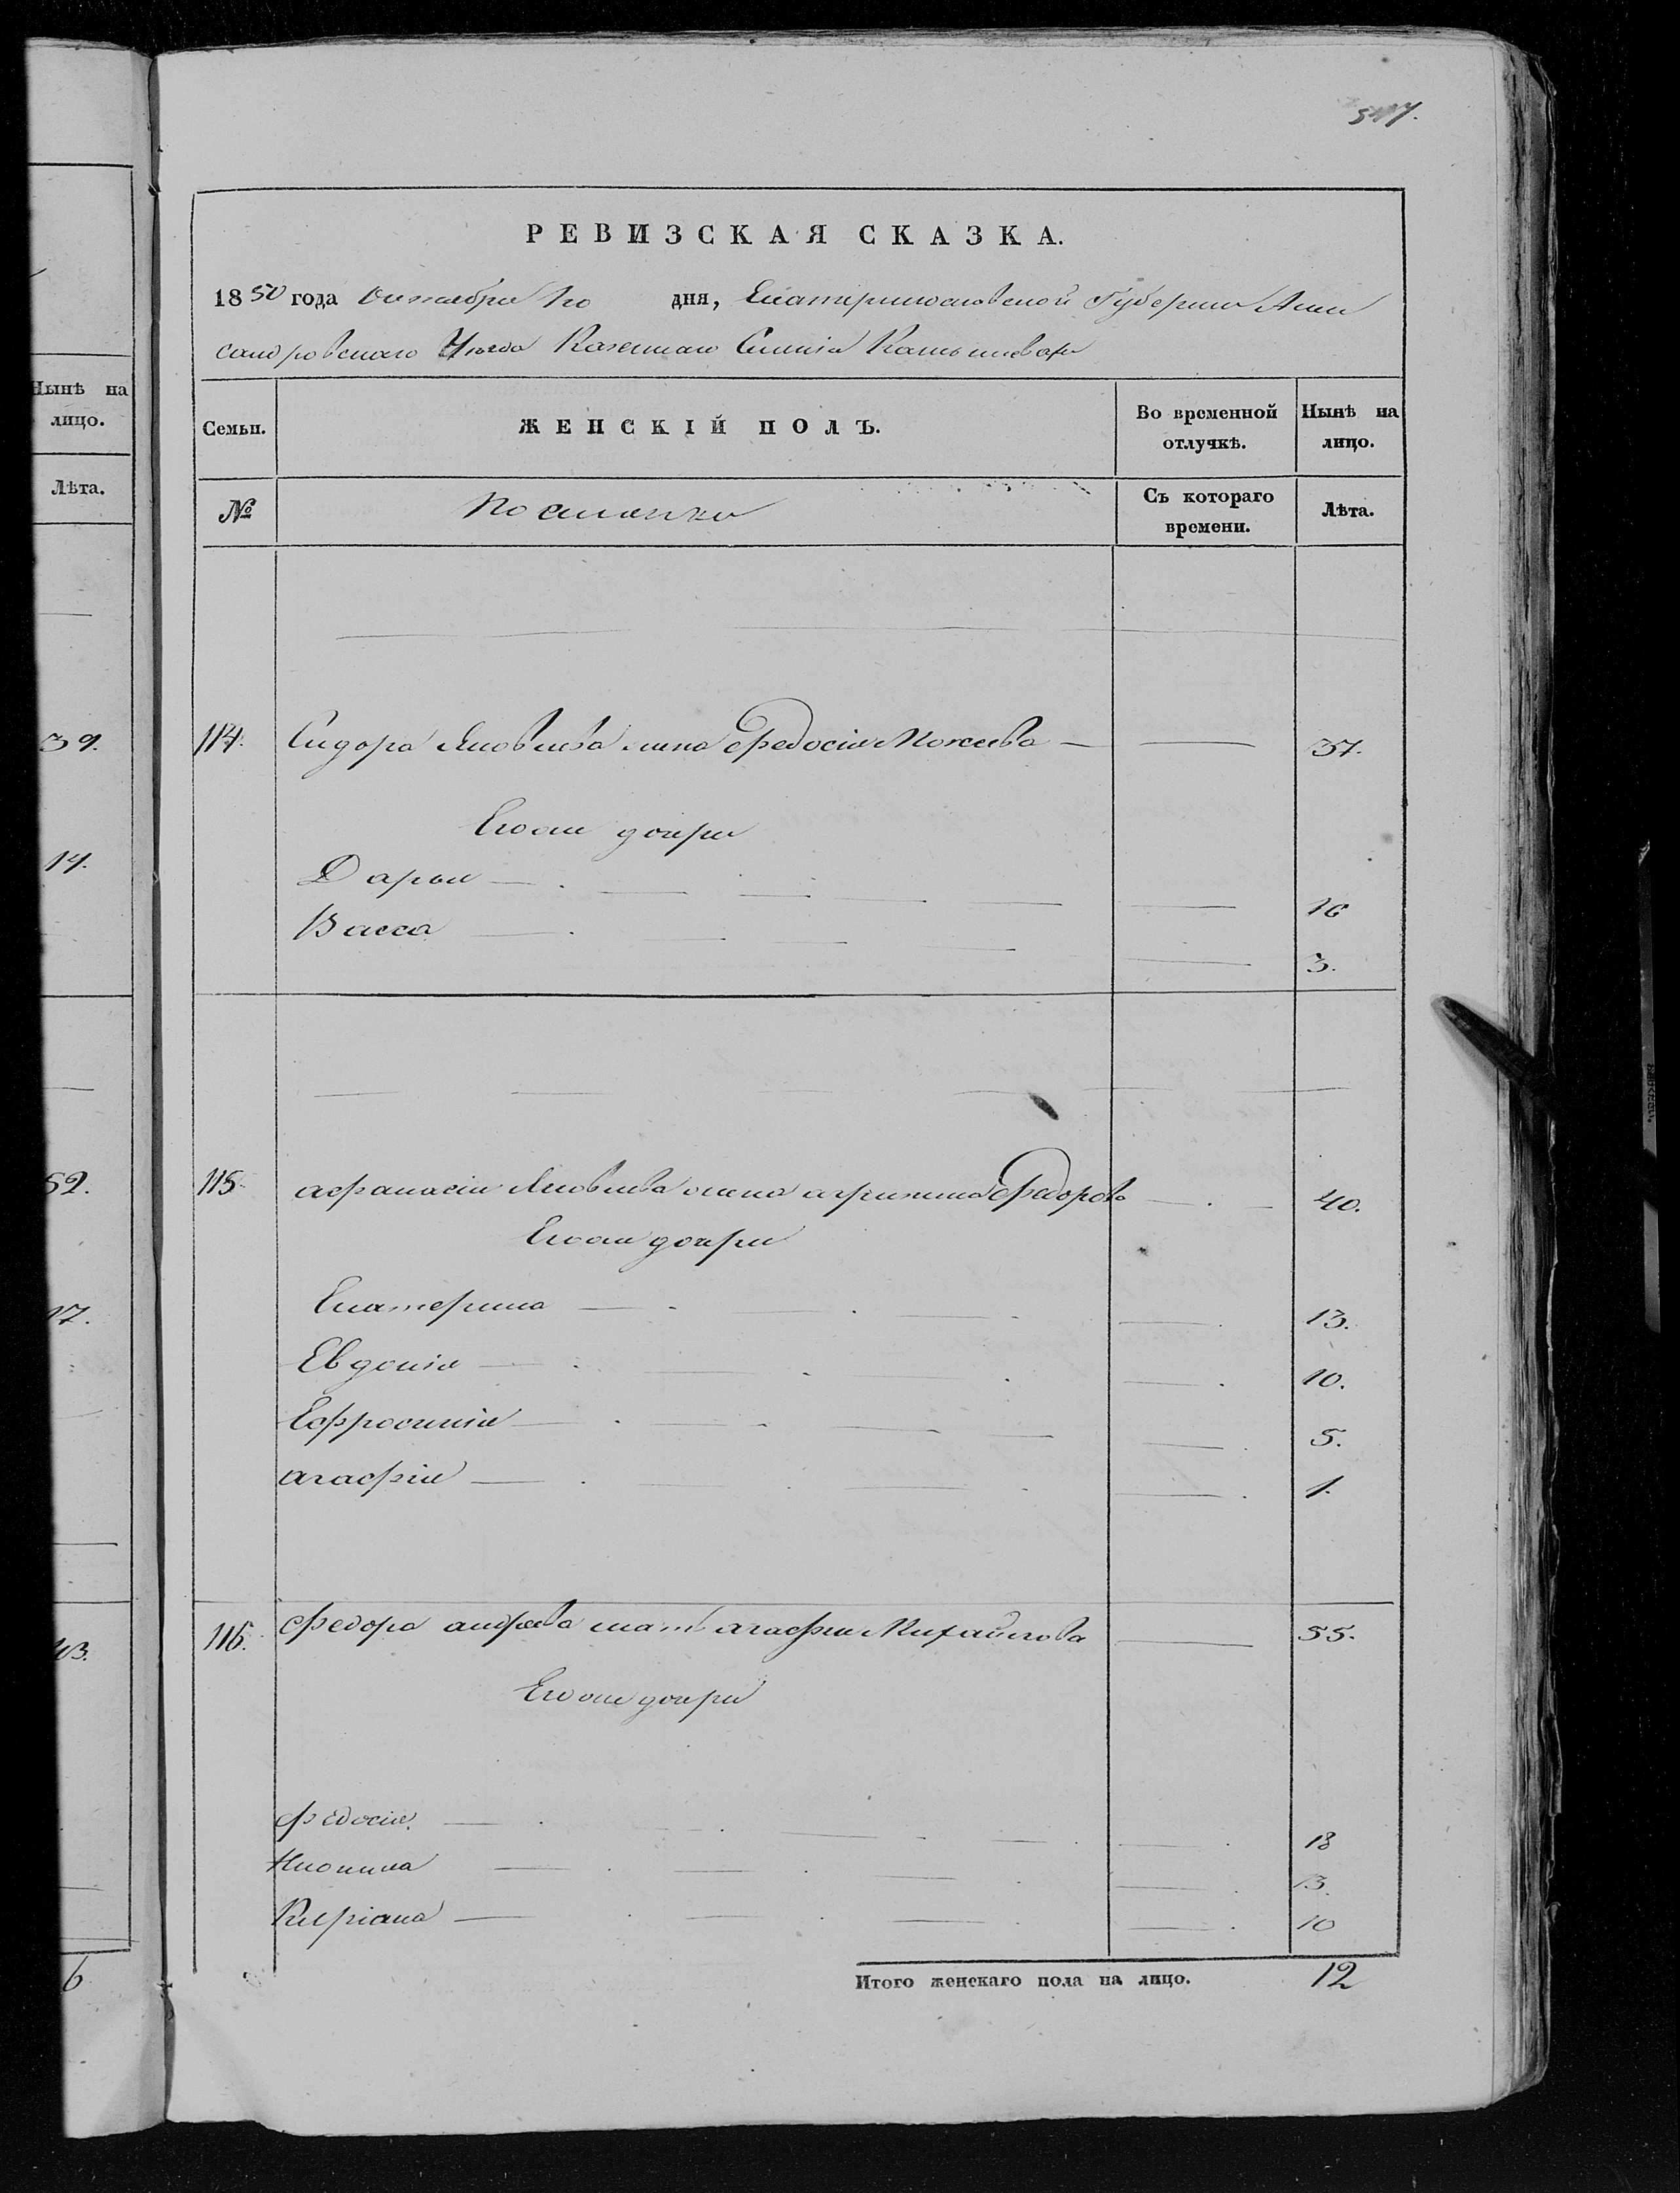 Нынѣ на
лицо.
Лѣта.
39.
14.
52.
17.
43.
6
РЕВИЗСКАЯ СКАЗКА.
1850 года Октября дня, Екатеринославской Губернии Алек
сандровскаго Уѣзда Казеннаго Селенія
Семьи.
ЖЕНСКІЙ ПОЛЪ.
Во временной отлучкѣ.
Нынѣ на лицо.
№
Съ котораго времени.
Лѣта.
114. Сидора Яковлева жена Федосія Мокеева — — 37.
Его же дочери
Дарья — 16
Васса — 3.
115 афанасія Яковлева жена агрипина Федорова — 40.
Его же дочери
Екатерина — 13.
Евдокія — 10.
Ефросинія — 5.
агафія — 1.
116. Федора андреева мать агафия Михайлова — 55.
Его же дочери
федосія — 18
13.
10
Итого женскаго пола на лицо. 12